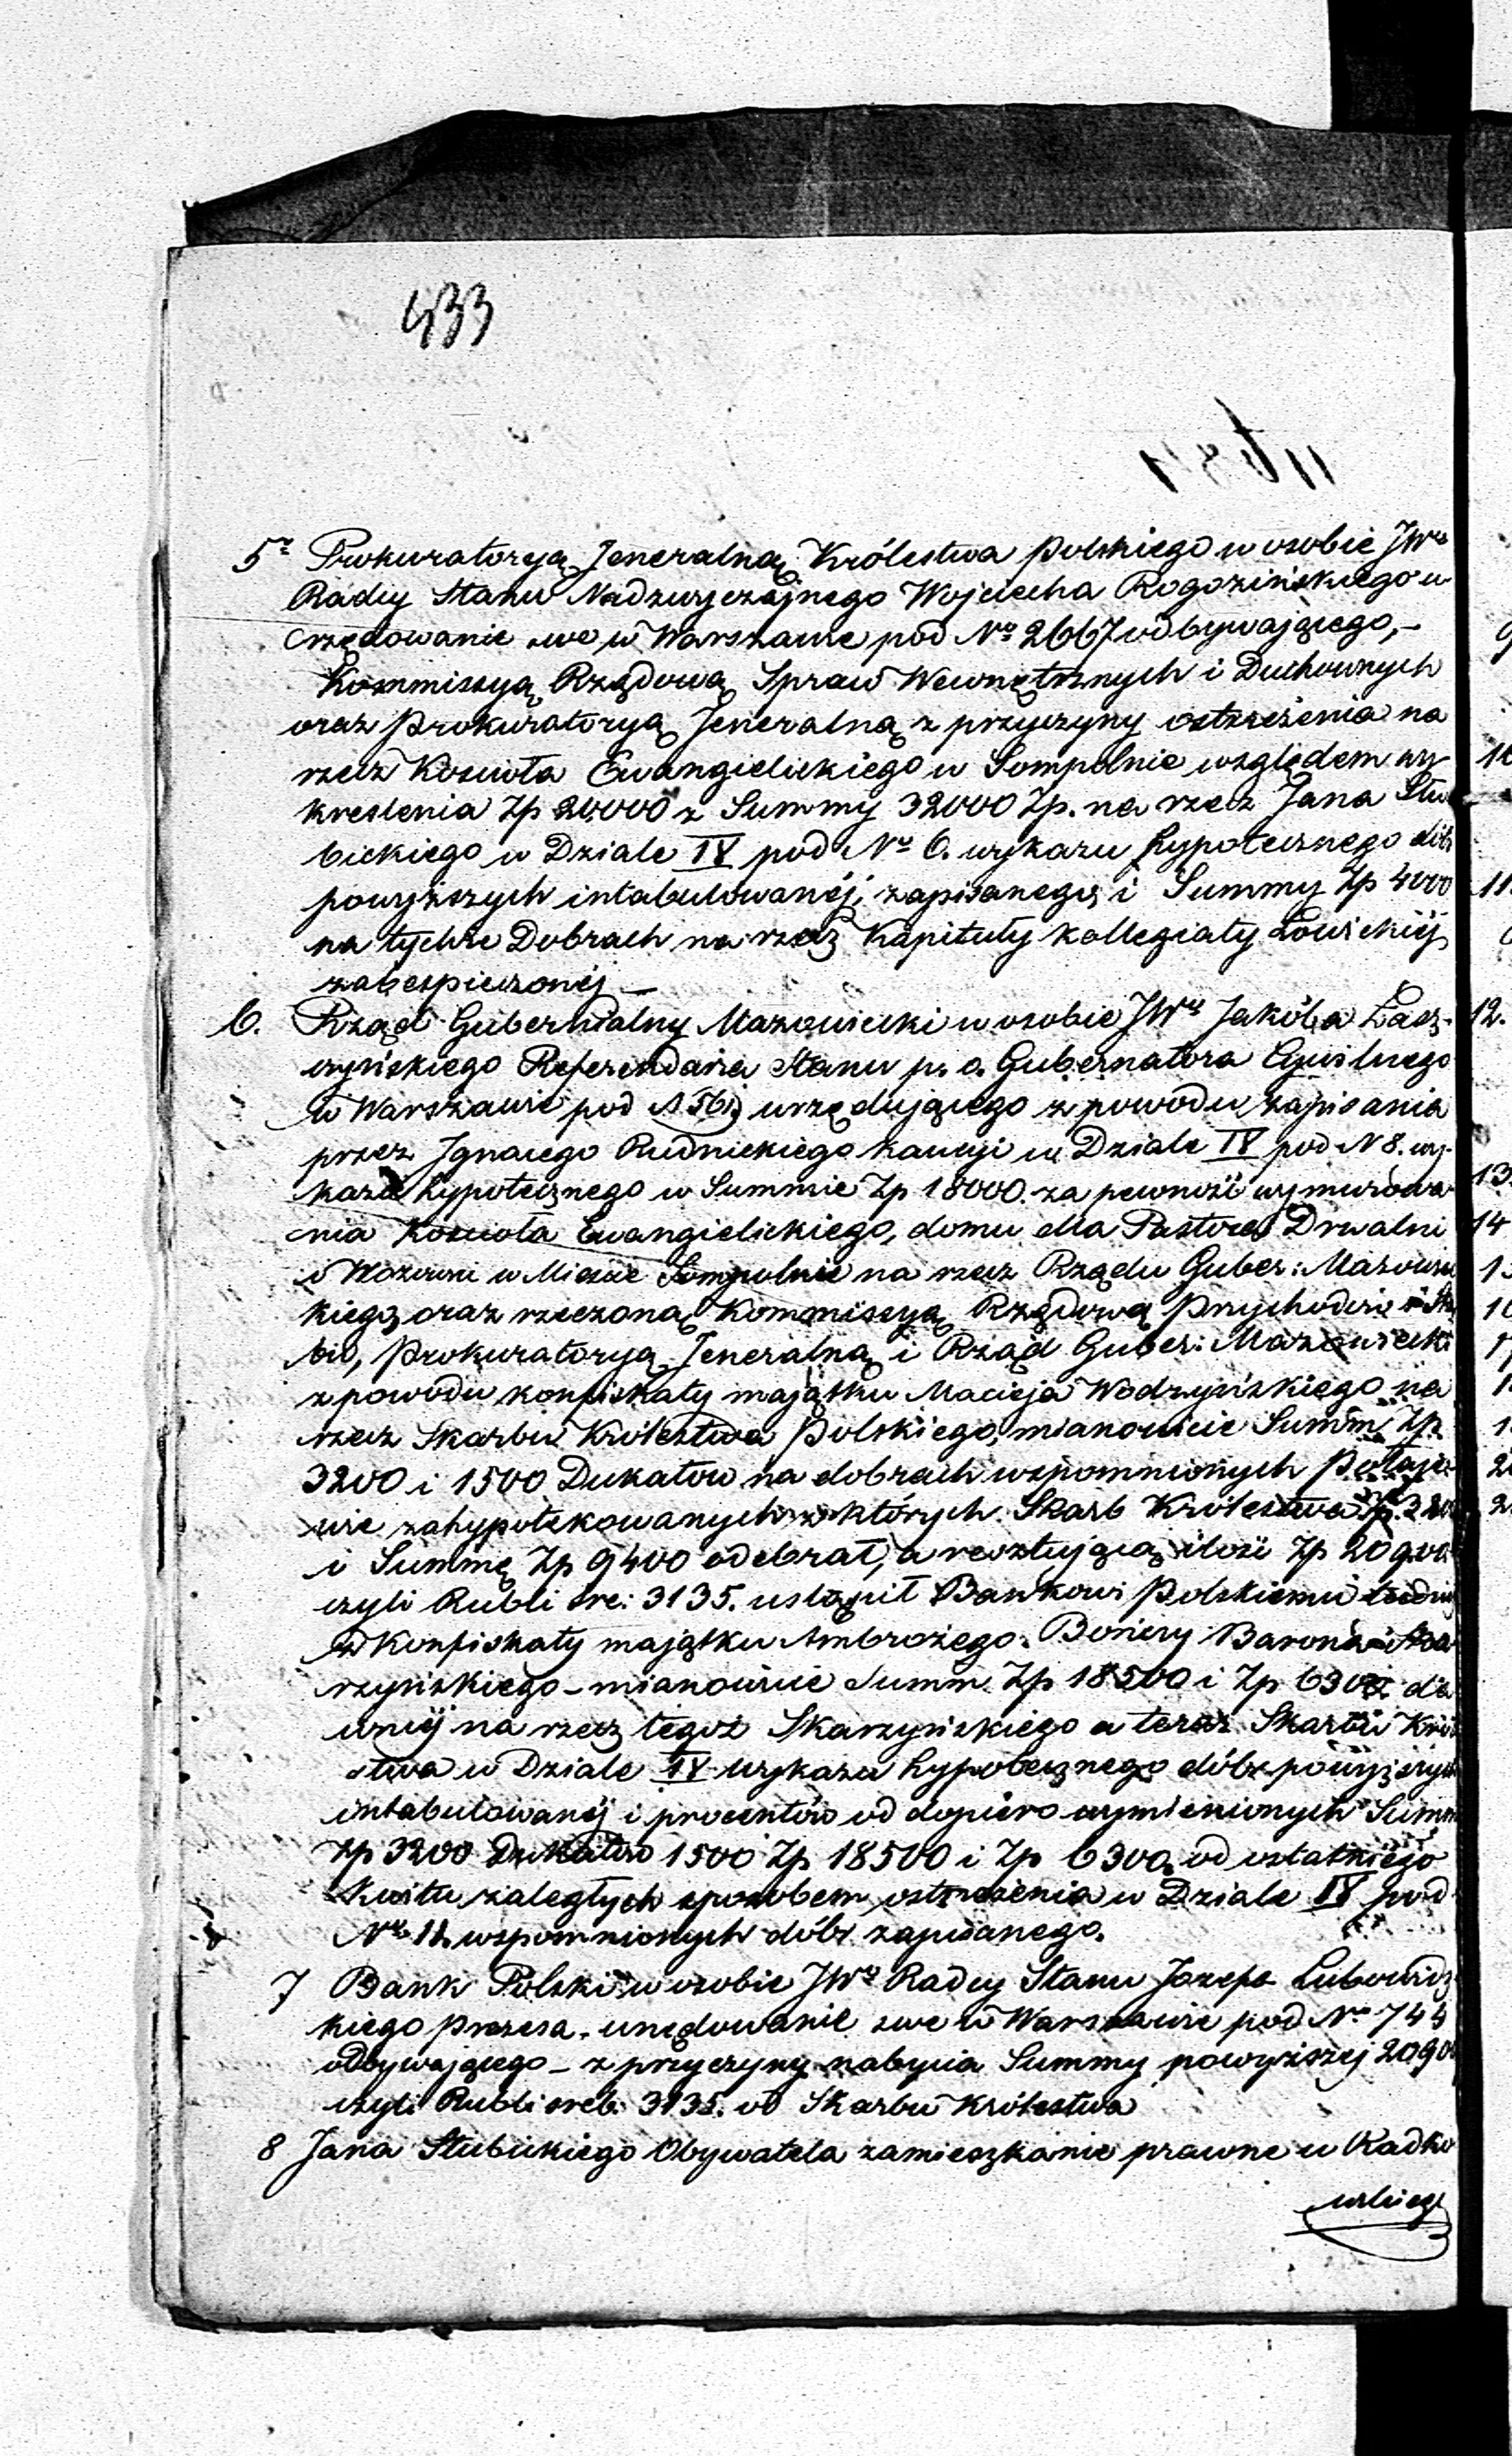 433
5. Prokuratoryą Jeneralną Królestwa Polskiego w osobie JWo
Radcy Stanu Nadzwyczajnego Wojciecha Rogozińskiego u-
rzędowanie swe w Warszawie pod No 2667 odbywającego,-
Kommissyą Rządową Spraw Wewnętrznych i Duchownych
oraz Prokuratoryą Jeneralną z przyczyny ostrzeżenia na
rzecz Koscioła Ewangielickiego w Sompolnie względem wy-
kreslenia Zp 20000 z Summy 32000 Zp. na rzecz Jana Słu
bickiego w Dziale IV pod No 6. wykazu hypotecznego dóbr
powyższych intabulowanéj, zapisanego, i Summy Zp 4000
na tychże Dobrach na rzecz Kapituły kollegiaty Łowickiéj
zabespieczonéj —
6. Rząd Gubernialny Mazowiecki w osobie JWo Jakóba Łasz-
czyńskiego Referendarza Stanu p. o. Gubernatora Cywilnego
w Warszawie pod N 561. urzędującego z powodu zapisania
przez Ignacego Rudnickiego kaucyi w Dziale IV pod N 8. wy-
kazu hypotecznego w Summie Zp 18000. za pewność wymurowa-
nia Kosciola Ewangielickiego, domu dla Pastora Drwalni
i Wozowni w Miescie Sompolnie na rzecz Rządu Guber: Mazowiec
kiego, oraz rzeczoną Kommissyą Rządową Przychodów i Ska
bu, Prokuratoryą Jeneralną i Rząd Guber: Mazowiecki
z powodu konfiskaty majątku Macieja Wodzyńskiego na
rzecz Skarbu Królestwa Polskiego, mianowicie Summ Zp.
3200 i 1500 Dukatow na dobrach wspomnionych
zahypotekowanych z których Skarb Królestwa Zp. 320
i Summę Zp 9400 odebrał, a resztującą ilość Zp 20900
czyli Rubli sre: 3135. ustąpił Bankowi Polskiemu
konfiskaty majątku Ambrożego Bonawentury Barona Ska
rzyńskiego – mianowicie Summ Zp 18500 i Zp 6300 da
wniéj na rzecz tegoż Skarzyńskiego a teraz Skarbu Kró
stwa w Dziale IV wykazu hypotecznego dóbr powyższych
intabulowanéj i procentów od dopiero wymienionych Summ
Zp 3200 Dukatow 1500 Zp 18500 i Zp 6300, od ostatniego
Kwitu zaległych sposobem ostrzeżenia w Dziale IV pod
No 11. wspomnionych dóbr zapisanego.
7 Bank Polski w osobie JWo Radcy Stanu Jozefa Lubowidz
kiego Prezesa – urzędowanie swe w Warszawie pod No 744
odbywającego – z przyczyny nabycia Summy powyższej 20900
czyli Rubli sreb: 3135. od Skarbu Królestwa
8 Jana Słubickiego Obywatela zamieszkanie prawne w Radko